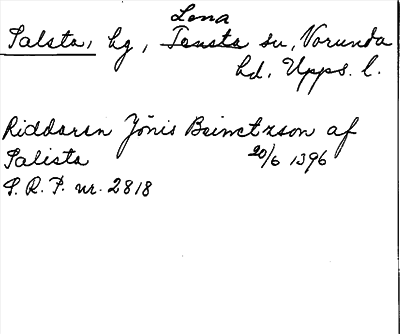 Lena
Salsta, hg, Tensta sn, Norunda
hd, Upps. l.
Riddaren Jönis Beinctzson af
Salista 20/6 1396
S. R. P. nr. 2818